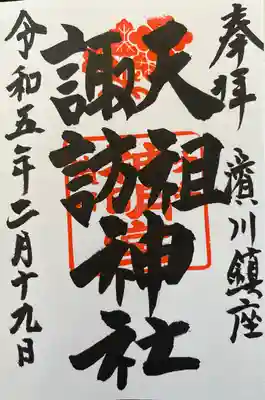 奉拝
濱川鎮座
天祖
諏訪神社
令和五年二月十九日